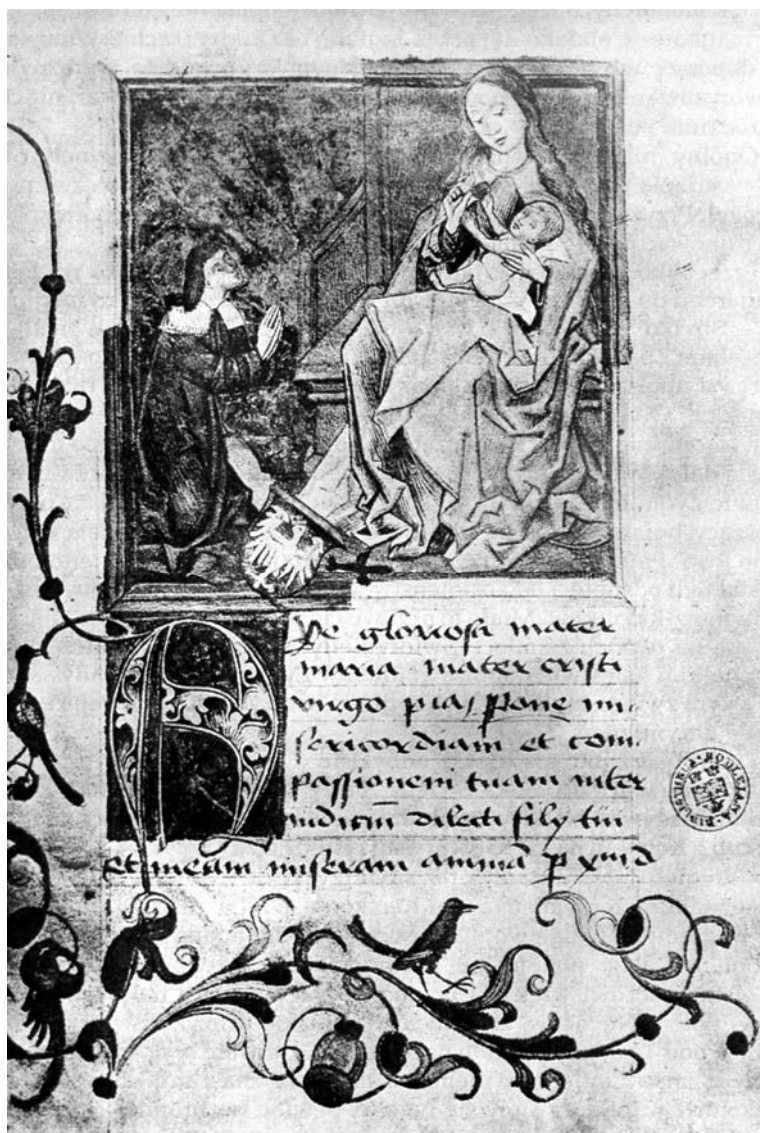 Ave gloriosa mater
maria mater cristi
virgo pia, pone mi-
sericordiam et com
passionem tuam inter
iudiciū dilecti filÿ tui
et meam miseram animā
BODLEIANA